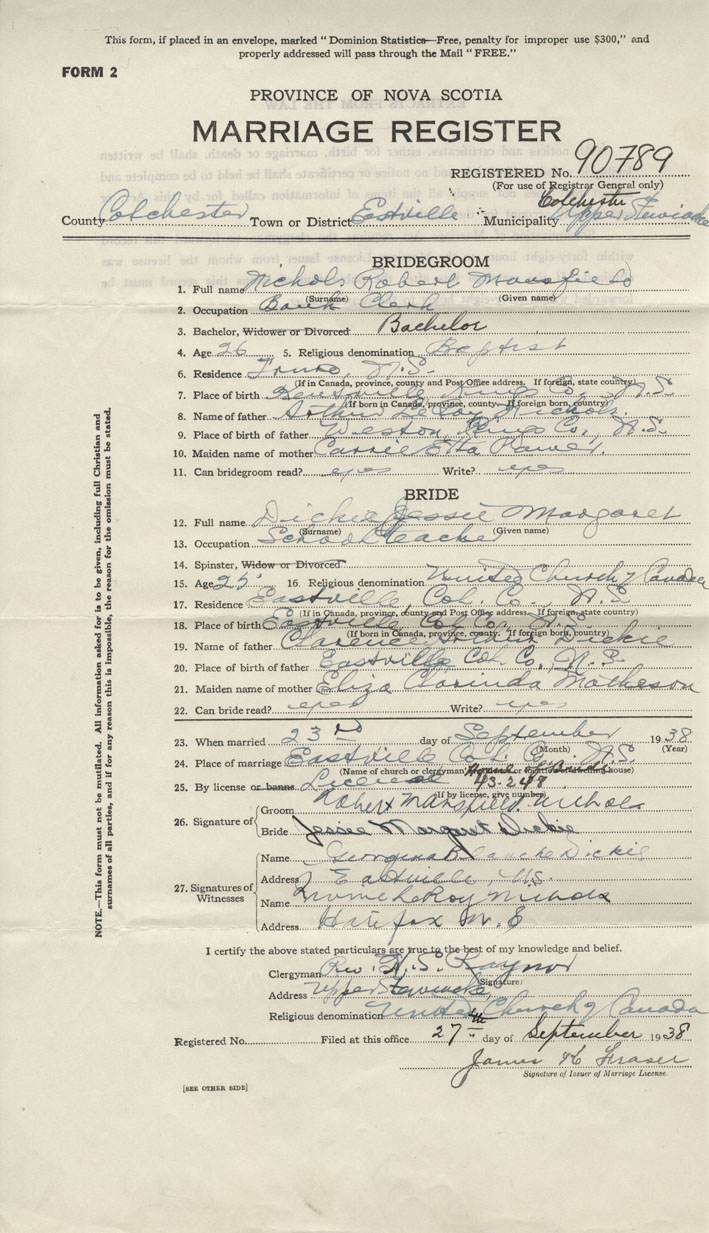 This form, if placed in an envelope, marked "Dominion Statistics—Free, penalty for improper use $300," and
properly addressed will pass through the Mail "FREE."
FORM 2
PROVINCE OF NOVA SCOTIA
MARRIAGE REGISTER
REGISTERED No. 90789
(For use of Registrar General only)
Colchester
County Colchester Town or District Eastville Municipality Upper Stewiacke
BRIDEGROOM
1. Full name Nichols Robert Mansfield
(Surname) (Given name)
2. Occupation Bank Clerk
3. Bachelor, Widower or Divorced Bachelor
4. Age 26 5. Religious denomination Baptist
6. Residence Truro, N.S.
(If in Canada, province, county and Post Office address. If foreign, state country)
7. Place of birth Kentville, Kings Co., N.S.
(If born in Canada, province, county. If foreign born, country)
8. Name of father Arthur LeRoy Nichols.
9. Place of birth of father Weston, Kings Co., N.S.
10. Maiden name of mother Carrie Etta
11. Can bridegroom read? yes Write? yes
BRIDE
12. Full name Dickie Jessie Margaret
(Surname) (Given name)
13. Occupation School Teacher
14. Spinster, Widow or Divorced
15. Age 25 16. Religious denomination United Church of Canada
17. Residence Eastville, Col. Co., N.S.
(If in Canada, province, county and Post Office address. If foreign, state country)
18. Place of birth Eastville Col. Co., N.S.
(If born in Canada, province, county. If foreign born, country)
19. Name of father Clarence Dickie
20. Place of birth of father Eastville Col. Co., N.S.
21. Maiden name of mother Eliza Clorinda Matheson
22. Can bride read? yes Write? yes
23. When married 23rd day of September 1938
(Month) (Year)
24. Place of marriage Eastville Col. Co., N.S.
(Name of church or clergyman's house or location of dwelling house)
25. By license or banns License 43.249
(If by license, give number)
26. Signature of
Groom Robert Mansfield Nichols
Bride Jessie Margaret Dickie
27. Signatures of Witnesses
Name Georgina Blanche Dickie
Address Eastville, N.S.
Name LeRoy Nichols
Address Halifax N.S
I certify the above stated particulars are true to the best of my knowledge and belief.
Clergyman Rev. N.S. Raynor
(Signature)
Address Upper Stewiacke,
Religious denomination United Church of Canada
Registered No. Filed at this office 27th day of September 1938
James K Fraser
Signature of Issuer of Marriage License.
[SEE OTHER SIDE]
NOTE.—This form must not be mutilated. All information asked for is to be given, including full Christian and
surnames of all parties, and if for any reason this is impossible, the reason for the omission must be stated.